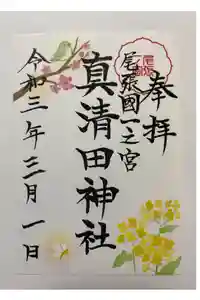 奉拝
尾張國一之宮
真清田神社
令和三年三月一日